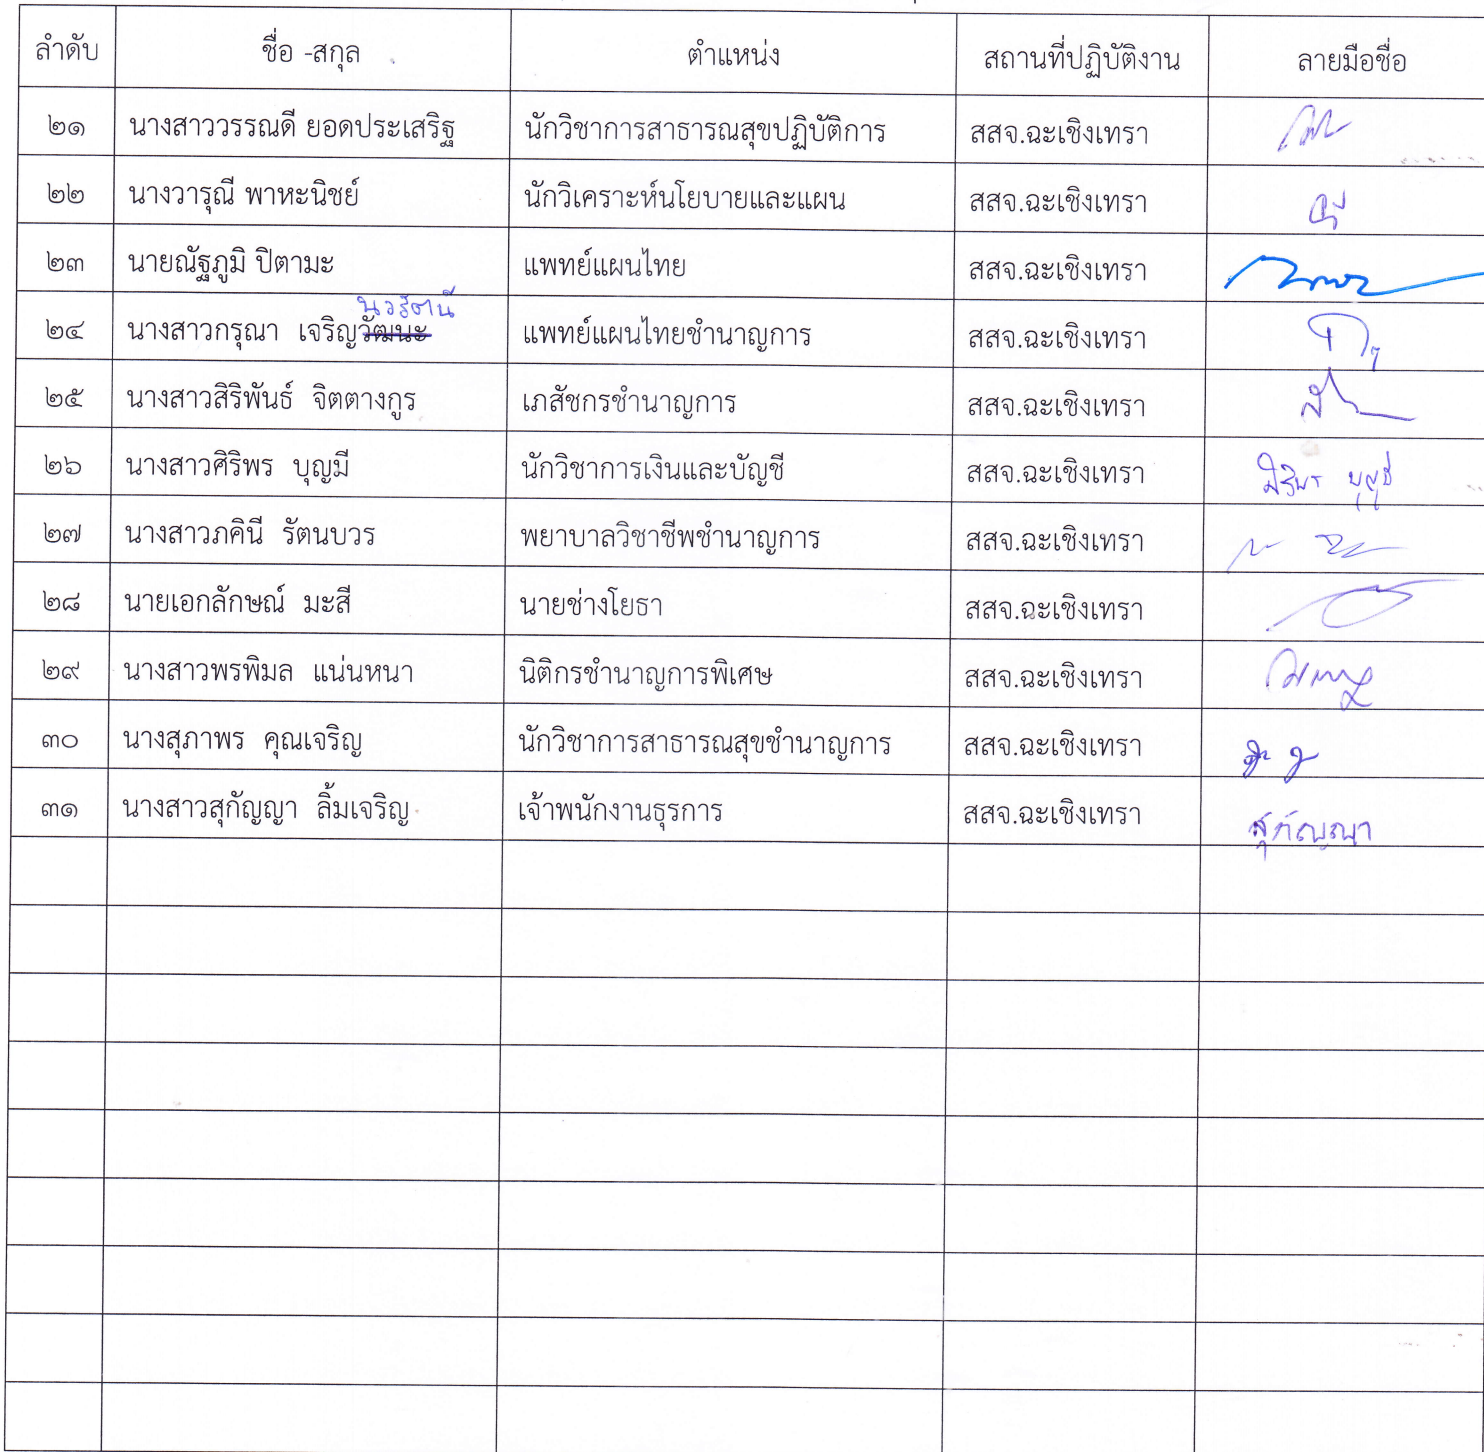 ลำดับ ชื่อ -สกุล ตำแหน่ง สถานที่ปฏิบัติงาน ลายมือชื่อ
๒๑ นางสาววรรณดี ยอดประเสริฐ นักวิชาการสาธารณสุขปฏิบัติการ สสจ.ฉะเชิงเทรา
๒๒ นางวารุณี พาหะนิชย์ นักวิเคราะห์นโยบายและแผน สสจ.ฉะเชิงเทรา
๒๓ นายณัฐภูมิ ปิตามะ แพทย์แผนไทย สสจ.ฉะเชิงเทรา
นวรัตน์
๒๔ นางสาวกรุณา เจริญวัฒนะ แพทย์แผนไทยชำนาญการ สสจ.ฉะเชิงเทรา
๒๕ นางสาวสิริพันธ์ จิตตางกูร เภสัชกรชำนาญการ สสจ.ฉะเชิงเทรา
๒๖ นางสาวศิริพร บุญมี นักวิชาการเงินและบัญชี สสจ.ฉะเชิงเทรา ศิริพร บุญมี
๒๗ นางสาวภคินี รัตนบวร พยาบาลวิชาชีพชำนาญการ สสจ.ฉะเชิงเทรา
๒๘ นายเอกลักษณ์ มะสี นายช่างโยธา สสจ.ฉะเชิงเทรา
๒๙ นางสาวพรพิมล แน่นหนา นิติกรชำนาญการพิเศษ สสจ.ฉะเชิงเทรา
๓๐ นางสุภาพร คุณเจริญ นักวิชาการสาธารณสุขชำนาญการ สสจ.ฉะเชิงเทรา
๓๑ นางสาวสุกัญญา ลิ้มเจริญ เจ้าพนักงานธุรการ สสจ.ฉะเชิงเทรา สุกัญญา